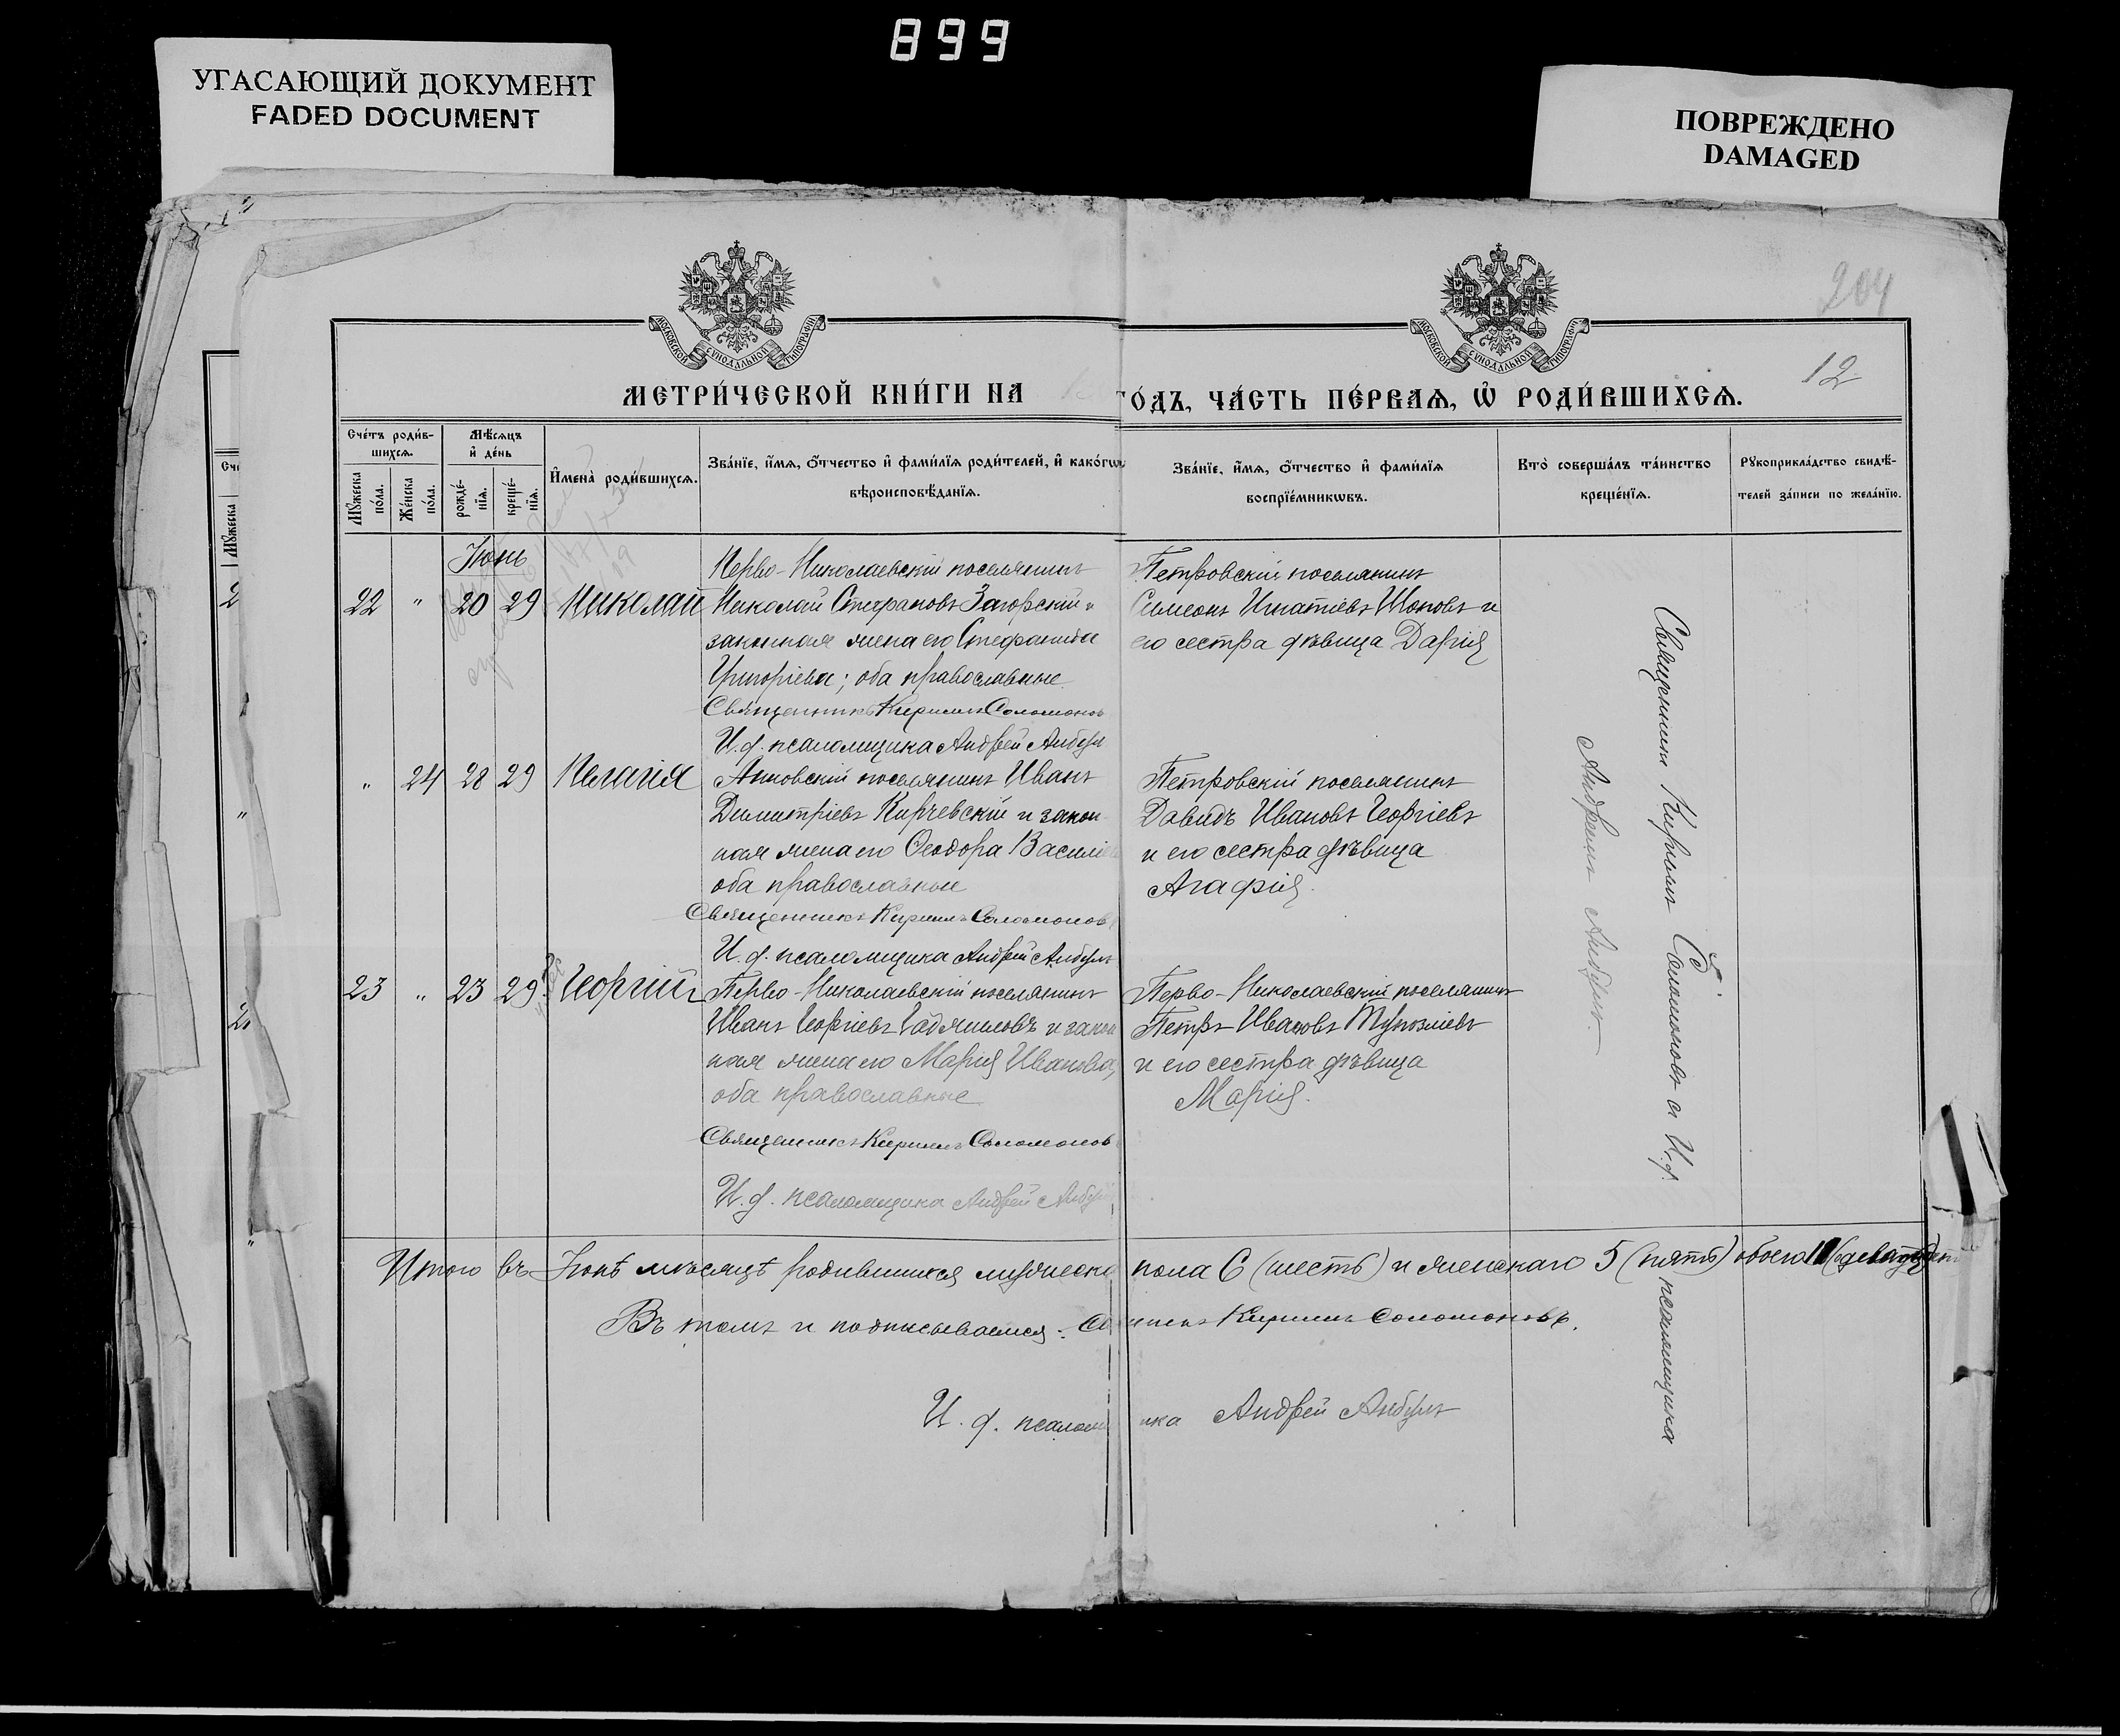 899
УГАСАЮЩИЙ ДОКУМЕНТ
FADED DOCUMENT
ПОВРЕЖДЕНО
DAMAGED
204
12
МОСКОВСКОЙ СѴНОДАЛЬНОЙ ТИПОГРАФІИ
МОСКОВСКОЙ СѴНОДАЛЬНОЙ ТИПОГРАФІИ
МЕТРИ́ЧЕСКОЙ КНИ́ГИ НА
ГО́ДЪ, ЧА́СТЬ ПЕ́РВАѦ, Ѽ РОДИ́ВШИХСѦ.
Сче́тъ роди́в-
шихсѧ.
Мꙋ́жеска
по́ла.
Же́нска
по́ла.
Мѣ́сѧцъ
и҆ де́нь
рожде́-
нїѧ.
креще́-
нїѧ.
И҆мена̀ роди́вшихсѧ.
Зва́нїе, и҆́мѧ, ѻ҆́тчество и҆ фами́лїѧ роди́телей, и҆ како́гѡ
вѣроисповѣ́данїѧ.
Зва́нїе, и҆́мѧ, ѻ҆́тчество и҆ фами́лїѧ
воспрїе́мникѡвъ.
Кто̀ соверша́лъ та́инство
креще́нїѧ.
Рꙋкоприкла́дство свидѣ́-
телей за́писи по жела́нїю.
Іюнь
22 " 20 29 Николай
Перво-Николаевскій поселянинъ
Николай Стефановъ Загорскій и
законная жена его Стефанида
Григоріева; оба православные
Священникъ Кириллъ Соломоновъ
И. д. псаломщика Андрей Анбулъ
Петровскій поселянинъ
Симеонъ Игнатіевъ Шоповъ и
его сестра дѣвица Дарія
" 24 28 29 Пелагія
Анновскій поселянинъ Иванъ
Димитріевъ Кирчевскій и закон
ная жена его Ѳеодора Василіе
оба православные
Священникъ Кириллъ Соломоновъ
И. д. псаломщика Андрей Анбулъ
Петровскій поселянинъ
Давидъ Ивановъ Георгіевъ
и его сестра дѣвица
Агафія.
23 " 23 29 Георгій
Перво-Николаевскій поселянинъ
Иванъ Георгіевъ и закон
ная жена его Марія Иванова,
оба православные
Священникъ Кириллъ Соломоновъ
И. д. псаломщика Андрей Анбулъ
Перво-Николаевскій поселянинъ
Петръ Ивановъ
и его сестра дѣвица
Марія.
Священникъ Кириллъ Соломоновъ и И. д.
псаломщика
Андрей Анбулъ.
Итого въ Іюнѣ мѣсяцѣ родившихся мужеска пола 6 (шесть) и женскаго 5 (пять) обоего 11
Въ томъ и подписываемся: Священникъ Кириллъ Соломоновъ.
И. д. псаломщика Андрей Анбулъ